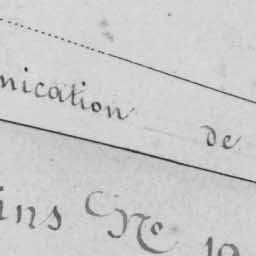 nication de
ins C Ne 19